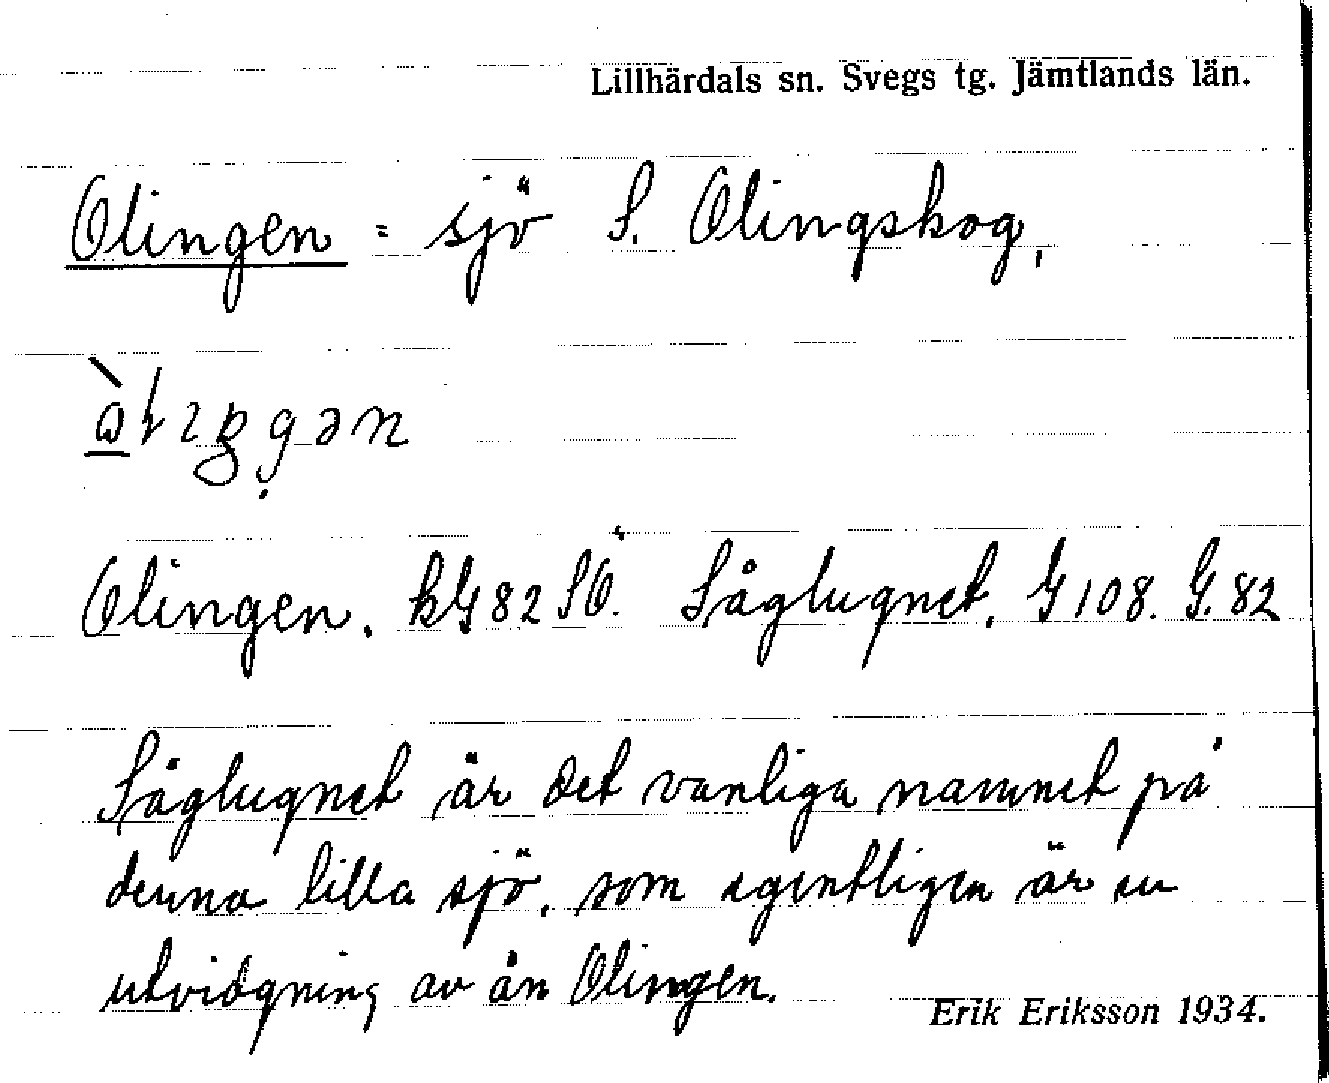 Lillhärdals sn. Svegs tg. Jämtlands län.
Olingen = sjö S. Olingskog,
Olingen. kG 82 SÖ. Såglugnet. G 108. G. 82
Såglugnet är det vanliga namnet på
denna lilla sjö, som egentligen är en
utvidgning av ån Olingen.
Erik Eriksson 1934.